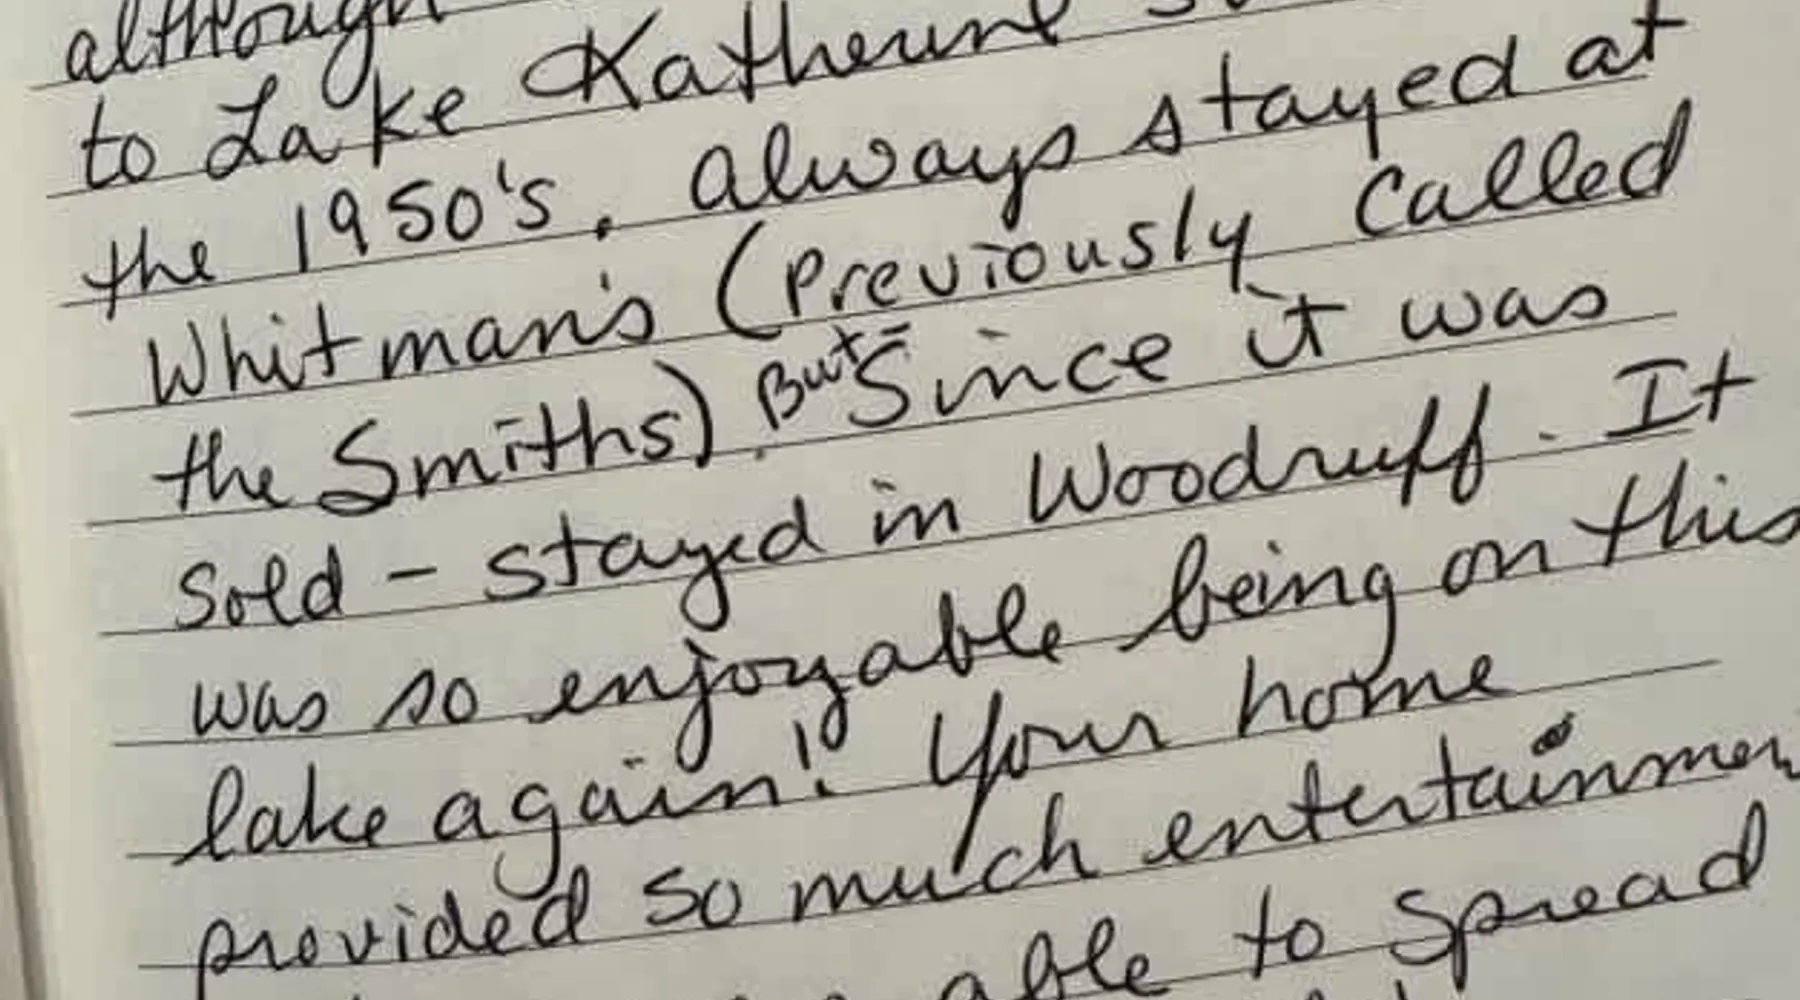 although
to Lake Katherine
the 1950's. always stayed at
Whitman's (previously called
the Smiths). But Since it was
sold - stayed in Woodruff. It
was so enjoyable being on this
lake again! Your home
provided so much entertainmen
able to spread